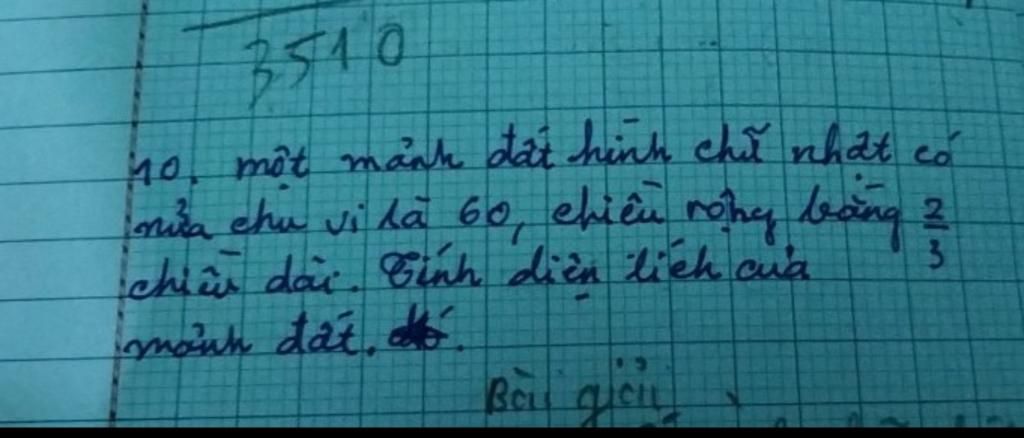 3510
10. một mảnh đất hình chữ nhật có
nửa chu vi là 60, chiều rộng bằng 2/3
chiều dài. Tính diện tích của
mảnh đất.
Bài giải